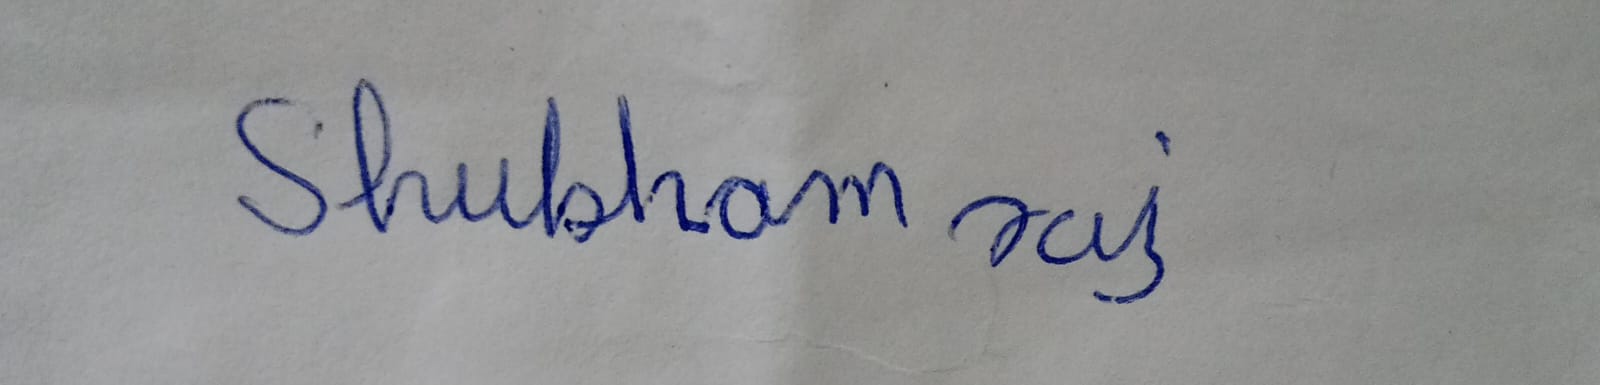 Shubham raj